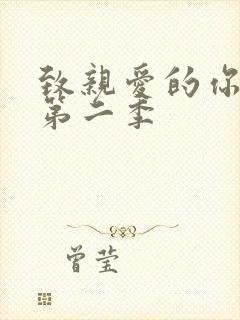 致親愛的你
第二季
曾莹